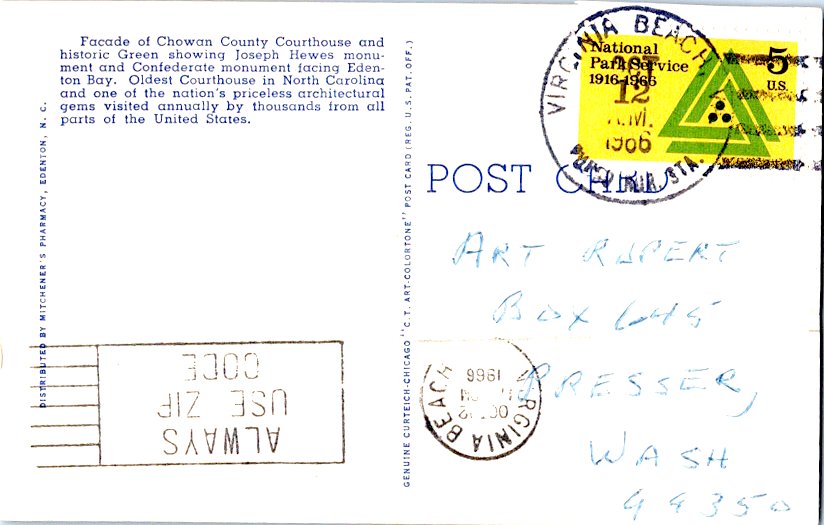 Facade of Chowan County Courthouse and
historic Green showing Joseph Hewes monu-
ment and Confederate monument facing Eden-
ton Bay. Oldest Courthouse in North Carolina
and one of the nation's priceless architectural
gems visited annually by thousands from all
parts of the United States.
DISTRIBUTED BY MITCHENER'S PHARMACY, EDENTON, N. C.
GENUINE CURTEICH-CHICAGO "C.T. ART-COLORTONE" POST CARD (REG. U.S. PAT. OFF.)
VIRGINIA BEACH,
12
A.M.
1966
STA.
National
Park Service
1916-1966
5
U.S.
POST CARD
ART RUPERT
BOX 645
PRESSER,
WASH
99350
VIRGINIA BEACH
OCT 12
1966
ALWAYS
USE ZIP
CODE